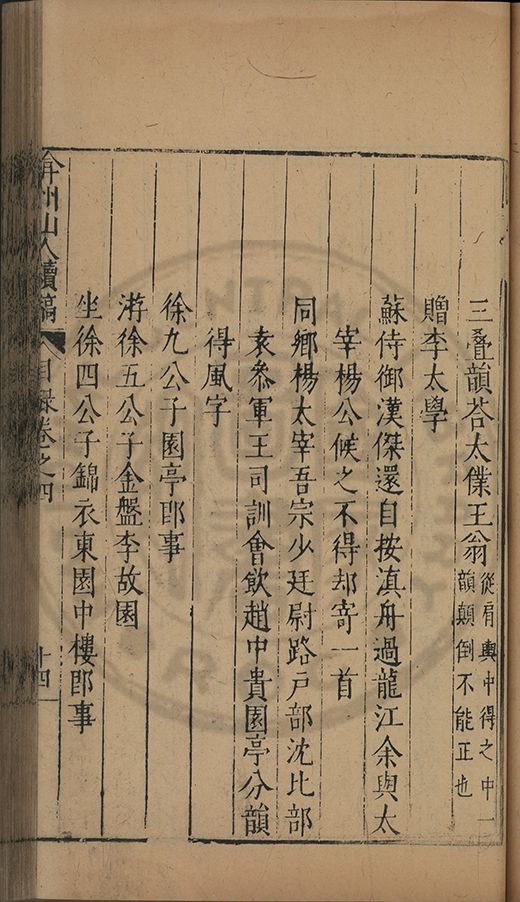 三疊韻荅太僕王翁從肩輿中得之中一
韻顛倒不能正也
贈李太學
蘇侍御漢傑還自按滇舟過龍江余與太
宰楊公候之不得却寄一首
同鄉楊太宰吾宗少廷尉路戶部沈比部
袁叅軍王司訓會飲趙中貴園亭分韻
得風字
徐九公子園亭即事
游徐五公子金盤李故園
坐徐四公子錦衣東園中樓即事
弇州山人續稿 目錄卷之四 十四